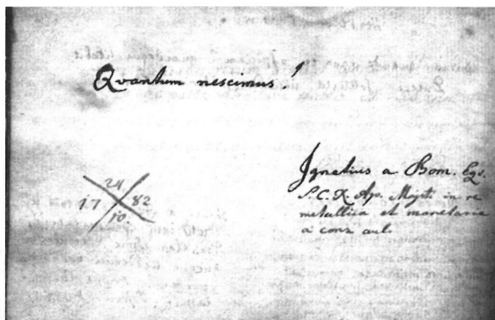 Quantum nescimus!
24
17 82
10.
Ignatius a Born. Eqs.
S.C.R. Ap. Majti in re
metallica et monetaria
a cons aul.